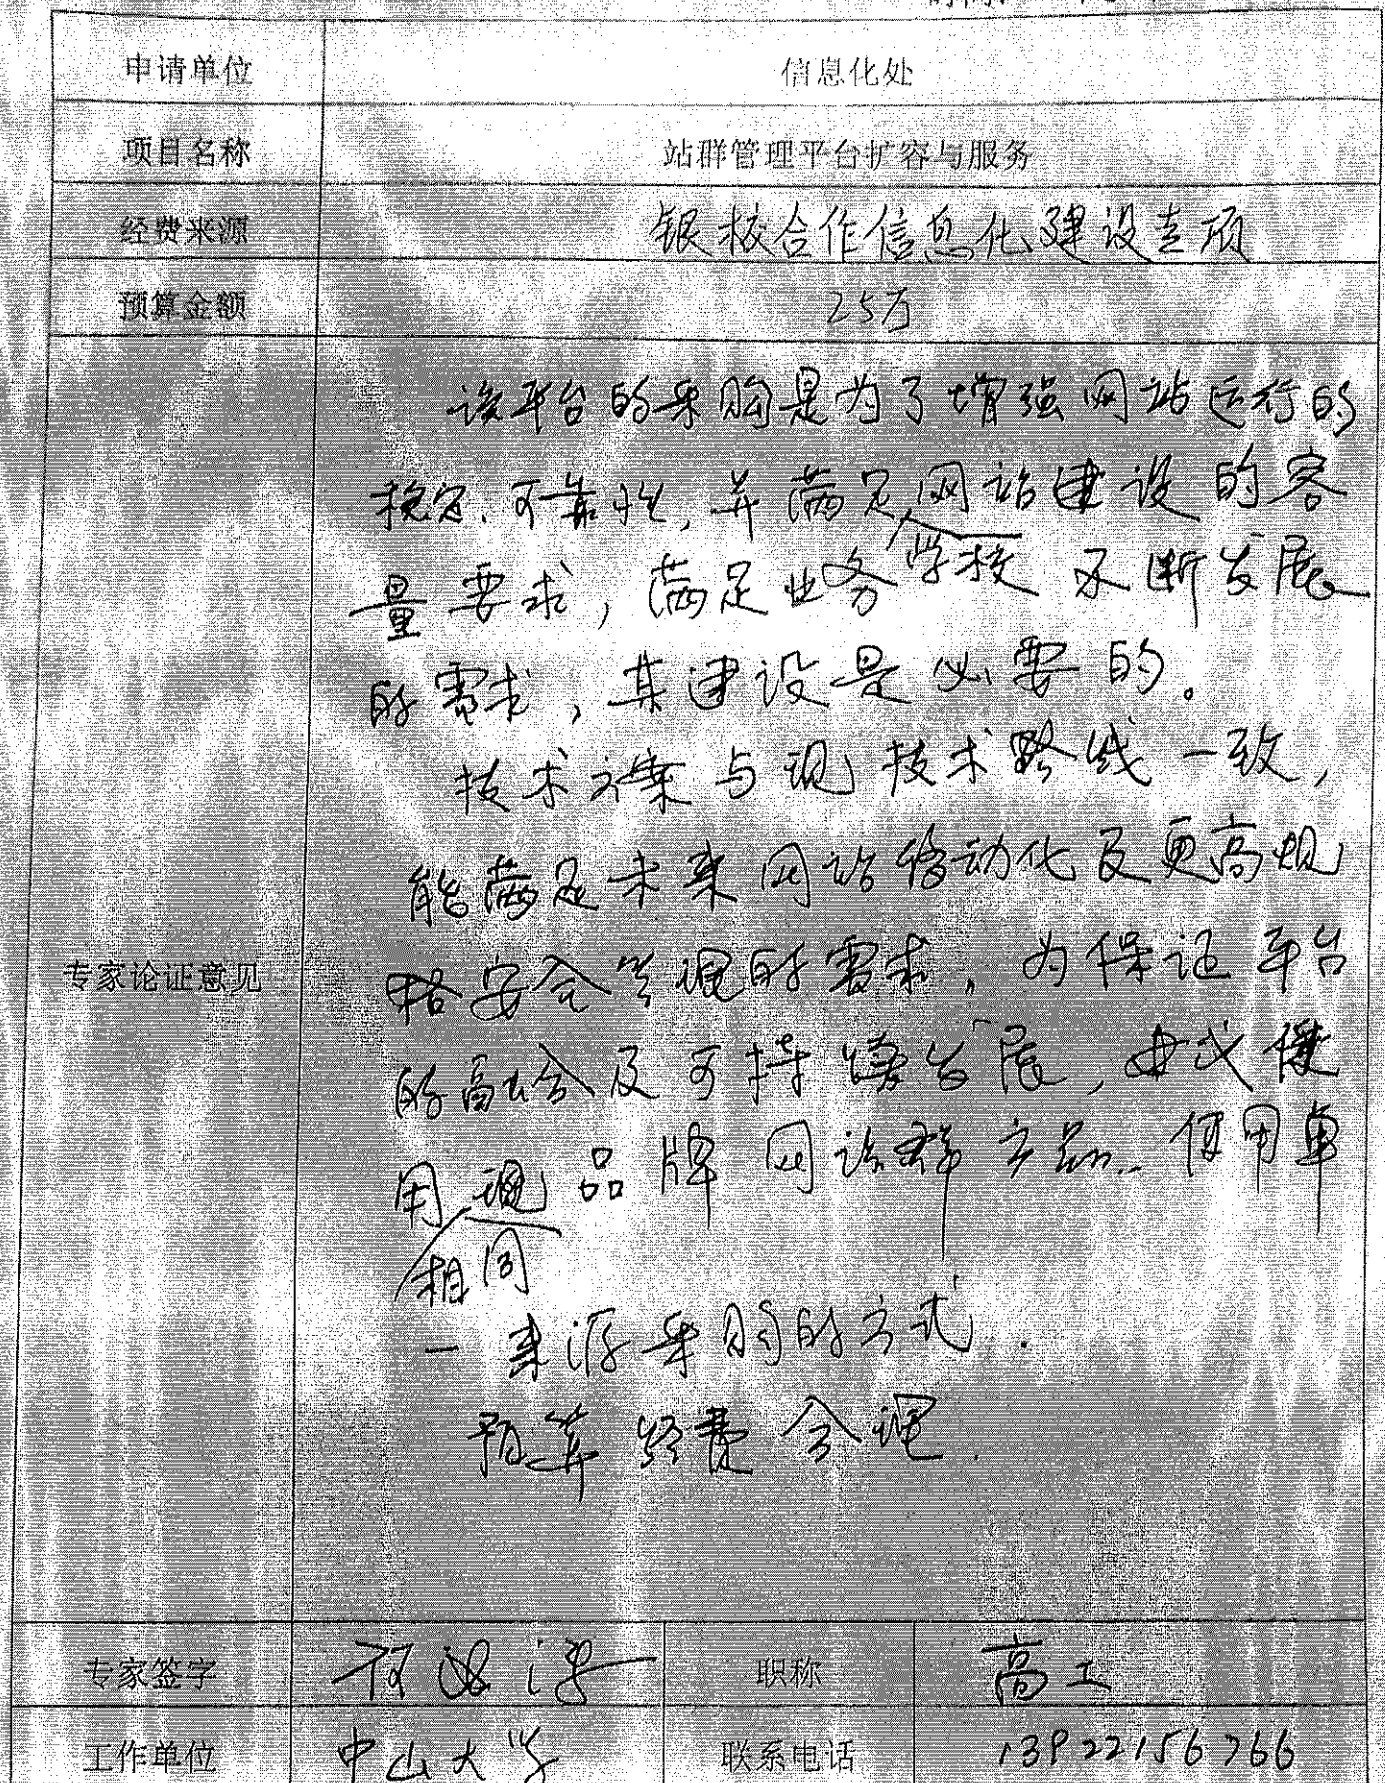 申请单位 信息化处
项目名称 站群管理平台扩容与服务
经费来源 银校合作信息化建设专项
预算金额 25万
该平台的采购是为了增强网站运行的
稳定、可靠性,并满足网站建设的容
学校
量要求,满足业务不断发展
的需求,其建设是必要的。
技术方案与现技术路线一致,
能满足未来网站移动化及更高规
专家论证意见
格安全管理的需求,为保证平台
的融合及可持续发展,建议使
用现品牌网站群产品..使用单
相同
一来源采购的方式.
预算经费合理.
专家签字 职称 高工
工作单位 中山大学 联系电话 13922156766